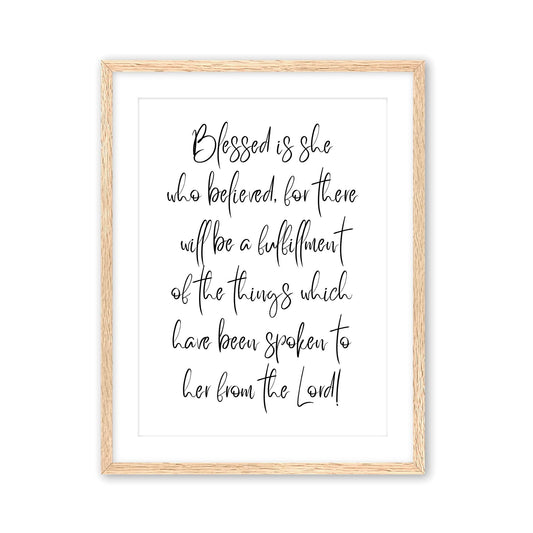 Blessed is she
who believed, for there
will be a fulfillment
of the things which
have been spoken to
her from the Lord!